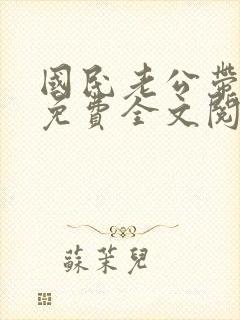 國民老公帶
免費全文閱
蘇茉兒